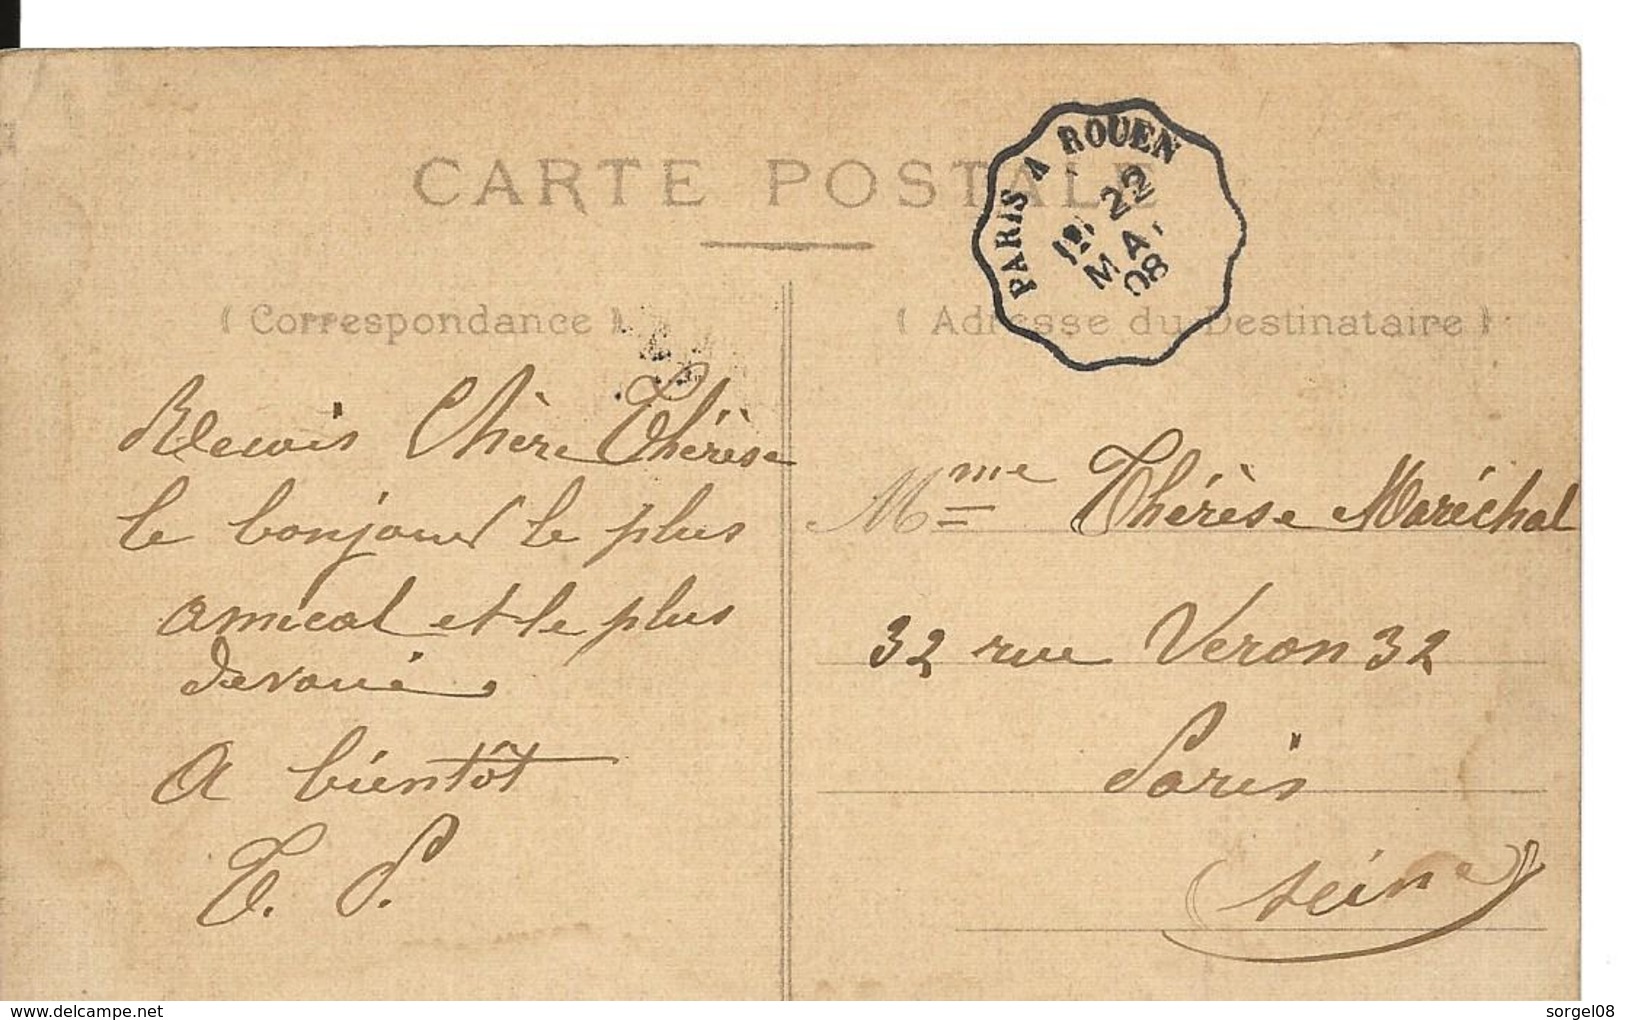 CARTE POSTALE
PARIS A ROUEN
22
MA
08
( Correspondance )
( Adresse du Destinataire )
Recois Chère Thérèse
le bonjour le plus
amical et le plus
devoué.
A bientôt
T. P.
Mme Thérèse Maréchal
32 rue Veron 32
Paris
(Seine)
www.delcampe.net
sorgel08